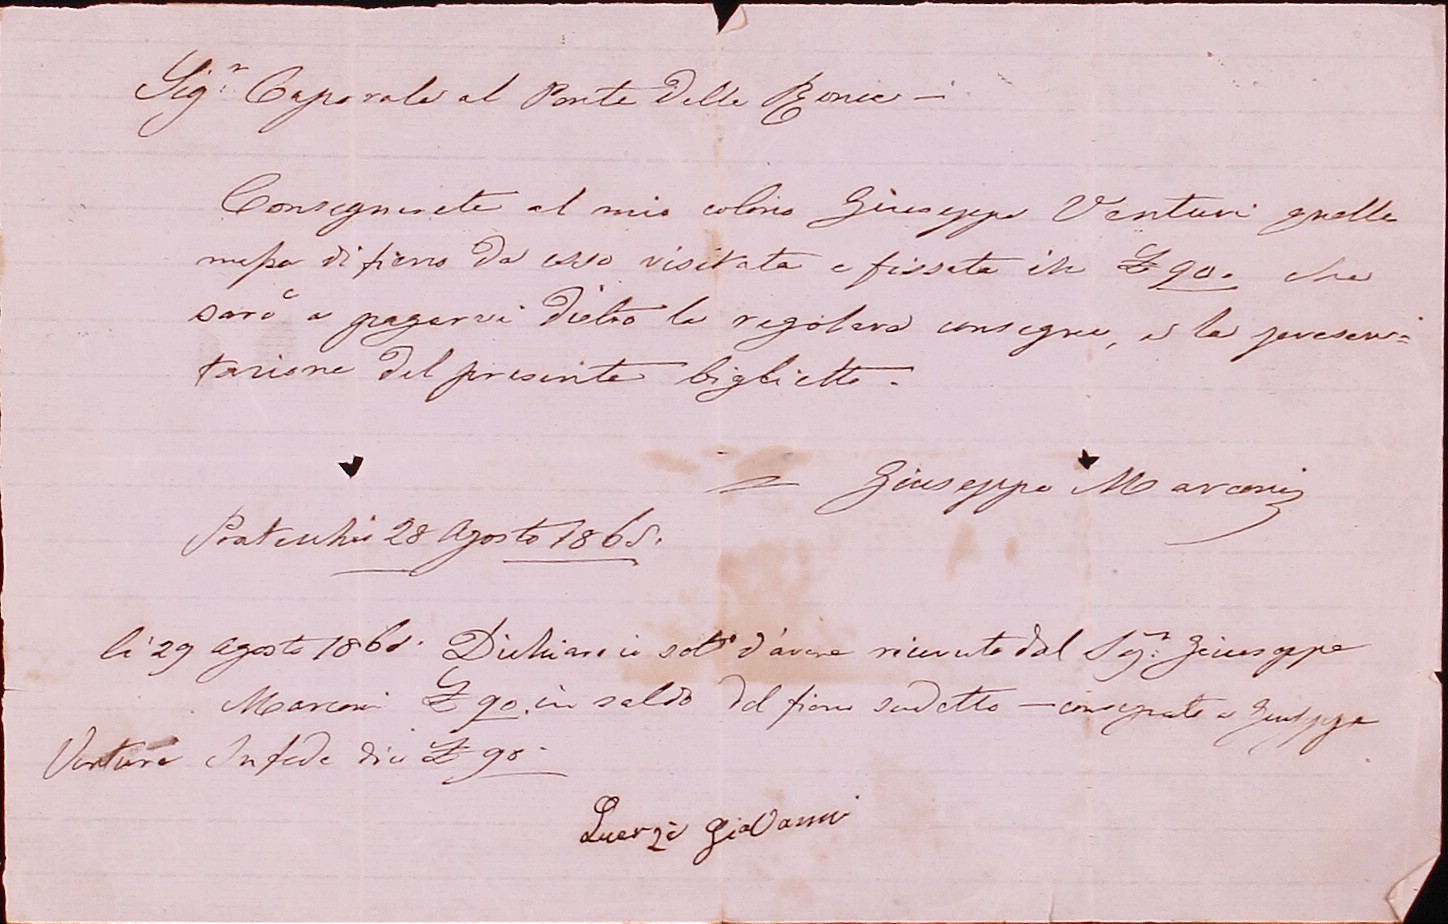 Sig.r Caporale al Ponte delle
Consegnerete al mio colono Giuseppe Venturi quella
massa di fieno da esso visitata e fissata in £ 90. che
sarò a pagarvi dietro la regolare consegna, e la presen=
tazione del presente biglietto.
Giuseppe Marconi
28 Agosto 1865.
li 29 Agosto 1865. Dichiaro io sotto d'avere ricevuto dal Sig.r Giuseppe
Marconi £ 90. in saldo del fieno sudetto — consegnato a Giuseppe
Venturi In fede dico £ 90.
Giovanni